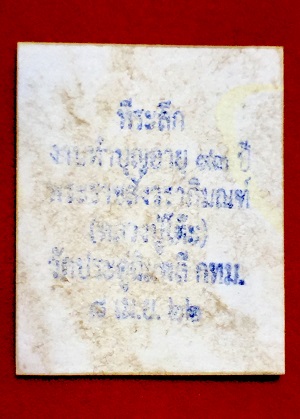 ที่ระลึก
งานทำบุญอายุ ๙๓ ปี
พระราชสังวราภิมณฑ์
(หลวงปู่โต๊ะ)
วัดประดู่ฉิมพลี กทม.
๘ เม.ย. ๒๒